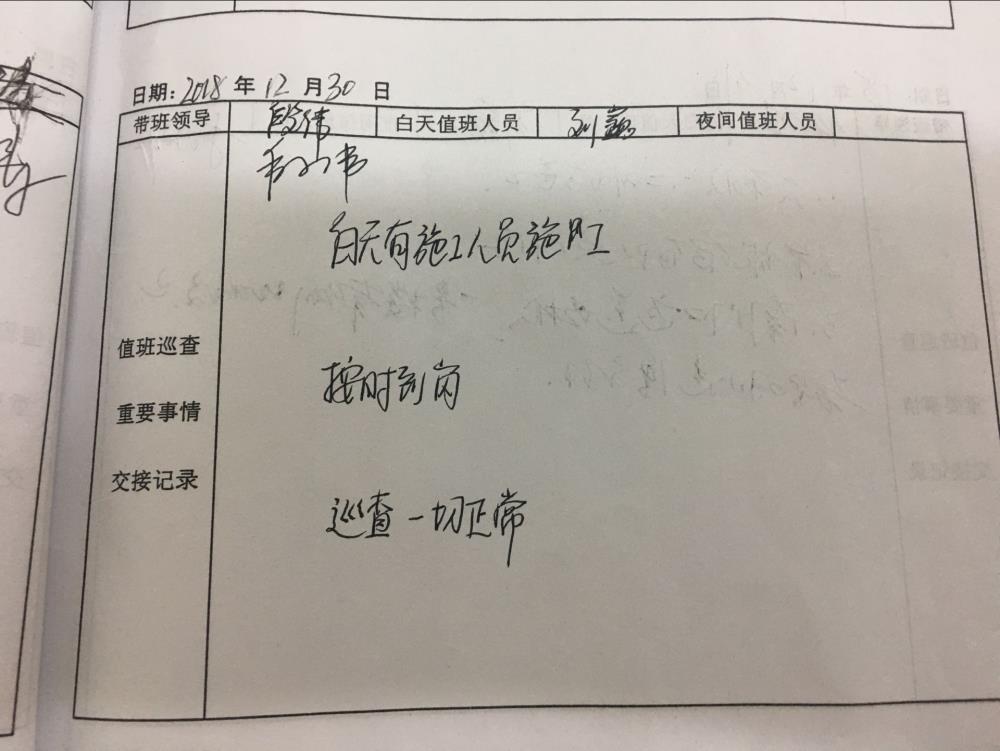 日期：2018 年 12 月 30 日
带班领导 段伟 白天值班人员 夜间值班人员
白天有施工人员施工
值班巡查
按时到岗
重要事情
交接记录
巡查一切正常